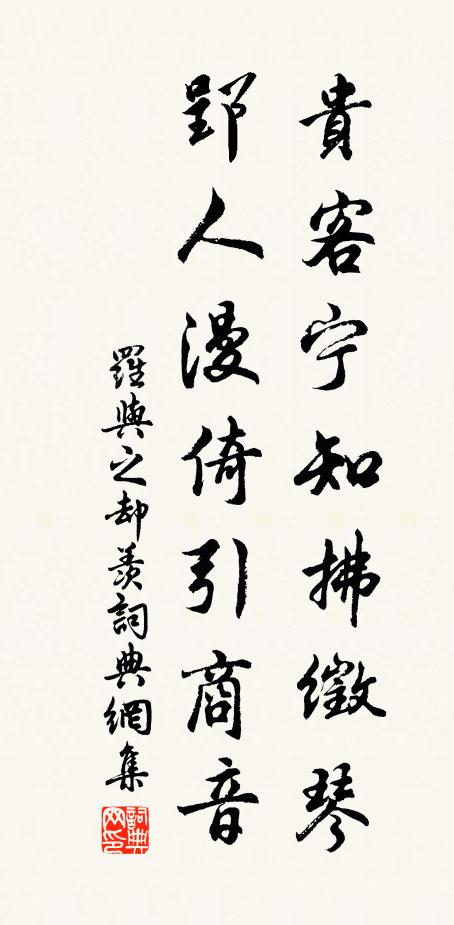 貴客宁知拂徽琴
郢人漫倚引商音
羅與之却羨詞典網集
詞典网印